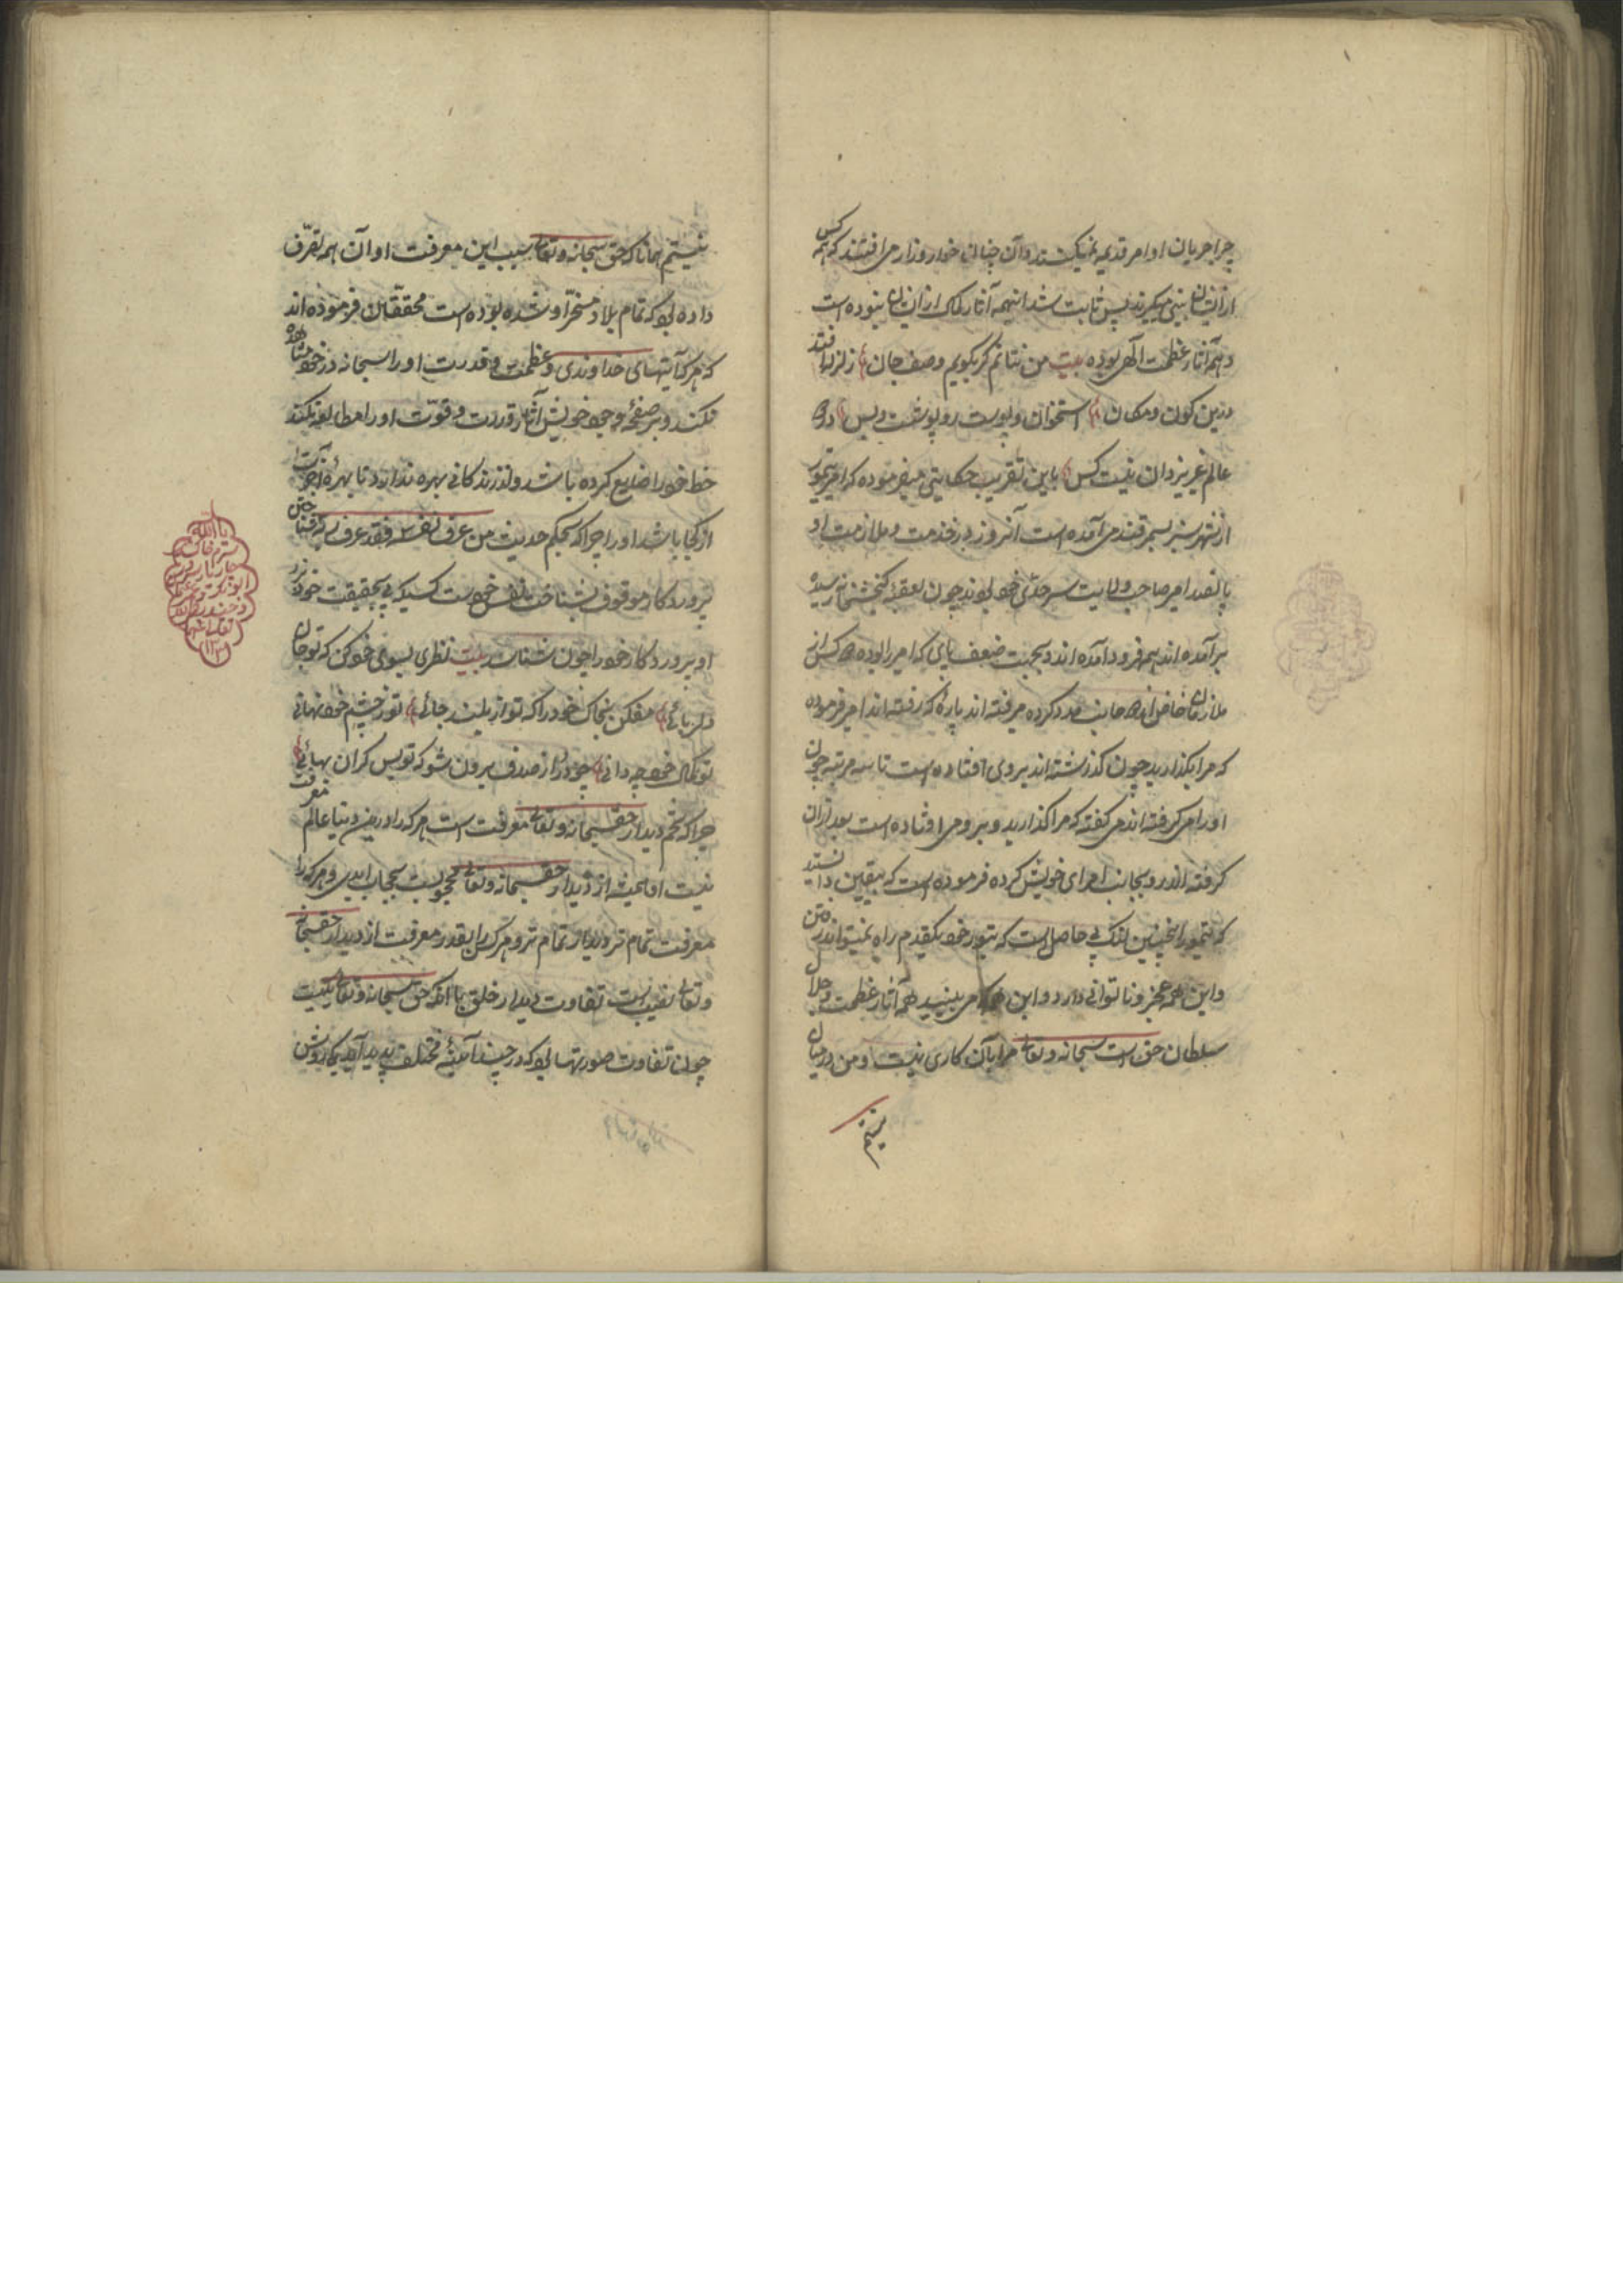 چرا جریان اوامر قدیمه نمیکنند و آن چنان خوار و زار می افتند که همه کس
از ایشان بینی میگیرند پس ثابت شد اینهمه آثار ملک از ایشان نبوده است
و همه آثار عظمت الهی بوده بیت من نتانم گر بگویم وصف جان زلزله افتد
درین کون و مکان استخوان و پوست روپوشت و بس در دو
عالم غیر یزدان نیست کس باین تقریب حکایتی میفرموده که امیر تیمور
از شهر سبز بسمرقند می آمده است آنروز در خدمت و ملازمت او
پانصد امیر صاحب ولایت سرحدی خود بودند چون بعقبه رسیده
برآمده اند همه فرود آمده اند و بجهت ضعف پایی که امیر را بوده دو کس از
ملازمان خاص از دو جانب مدد کرده میرفته اند پاره که رفته اند امیر فرموده
که مرا بگذارید چون گذشته اند بروی افتاده است تا سه مرتبه چون
او را می گرفته اند می گفته که مرا گذارید و برو می افتاده است بعد از آن
گرفته اند رو بجانب امرای خویش کرده فرموده است که بیقین دانستید
که تیمور را اینچنین لنگ بی حاصل است که بتیور خود یکقدم راه نمیتواند رفتن
و این همه عجز و ناتوانی دارد و این همه که می بینید همه آثار عظمت و جلال
سلطان حق است سبحانه و تعالی مرا بآن کاری نیست و من در میان
نیستم
نیستم همانا که حق سبحانه و تعالی سبب این معرفت او آن همه تصرف
داده بود که تمام بلاد مسخر او شده بوده است محققان فرموده اند
که هر که آیتهای خداوندی و عظمت و قدرت او را سبحانه در خود مشاهده
نکند و بر صفحه وجود خویش آثار قدرت و قوت او را مطالعه نکند
خط خود را ضایع کرده باشد و از زندگانی بهره ندارد تا بهره آخرت
از کجا باشد او را چرا که بحکم حدیث من عرف نفسه فقد عرف ربه شناختن
پروردگار موقوف بشناخت نفس خود است کسیکه پی بحقیقت خود نبرد
او پروردگار خود را چون شناسد بیت نظری بسوی خود کن که تو جان
دلربائی مفکن بخاک خود را که تو از بلند جائی تو ز چشم خود نهانی
تو کمال خود چه دانی چو در از صدف برون شو که تو بس گران بهائی
چرا که تخم دیدار حق سبحانه و تعالی معرفت است هر که را درین دنیا عالم معرفت
نیست او همیشه از دیدار حق سبحانه و تعالی محجوبست بحجاب ابدی و هر که را
معرفت تمام تر دیدار تمام تر و هر کس را بقدر معرفت از دیدار حق سبحانه
و تعالی نصیب است تفاوت دیدار خلق با آنکه حق سبحانه و تعالی یکیست
چون تفاوت صورتها بود که در چند آئینه مختلف پدید آید یکی روشن
یا الله